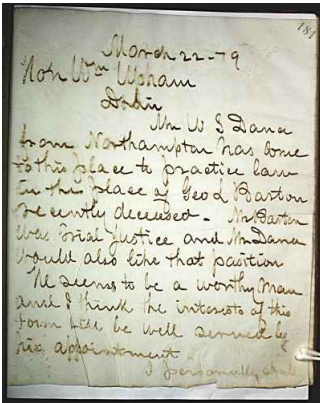 181
March 22 - 79
Hon Wm
Dr Sir
Mr W S Dana
from Northampton has come
to this place to practice law
in the place of Geo L Barton
recently deceased - Mr Barton
was Trial Justice and Mr Dana
would also like that position
He seems to be a worthy man
and I think the interests of this
town will be well served by
his appointment
I personally shall